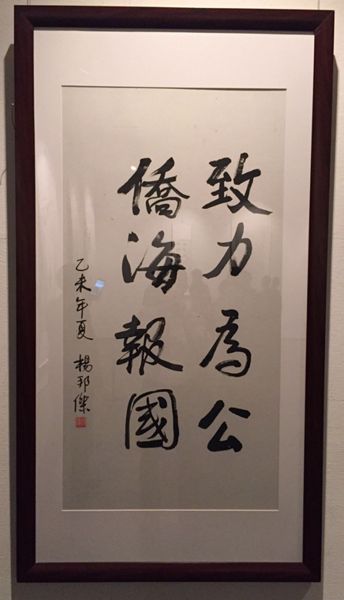 致力為公
僑海報國
乙未年夏 楊邦傑